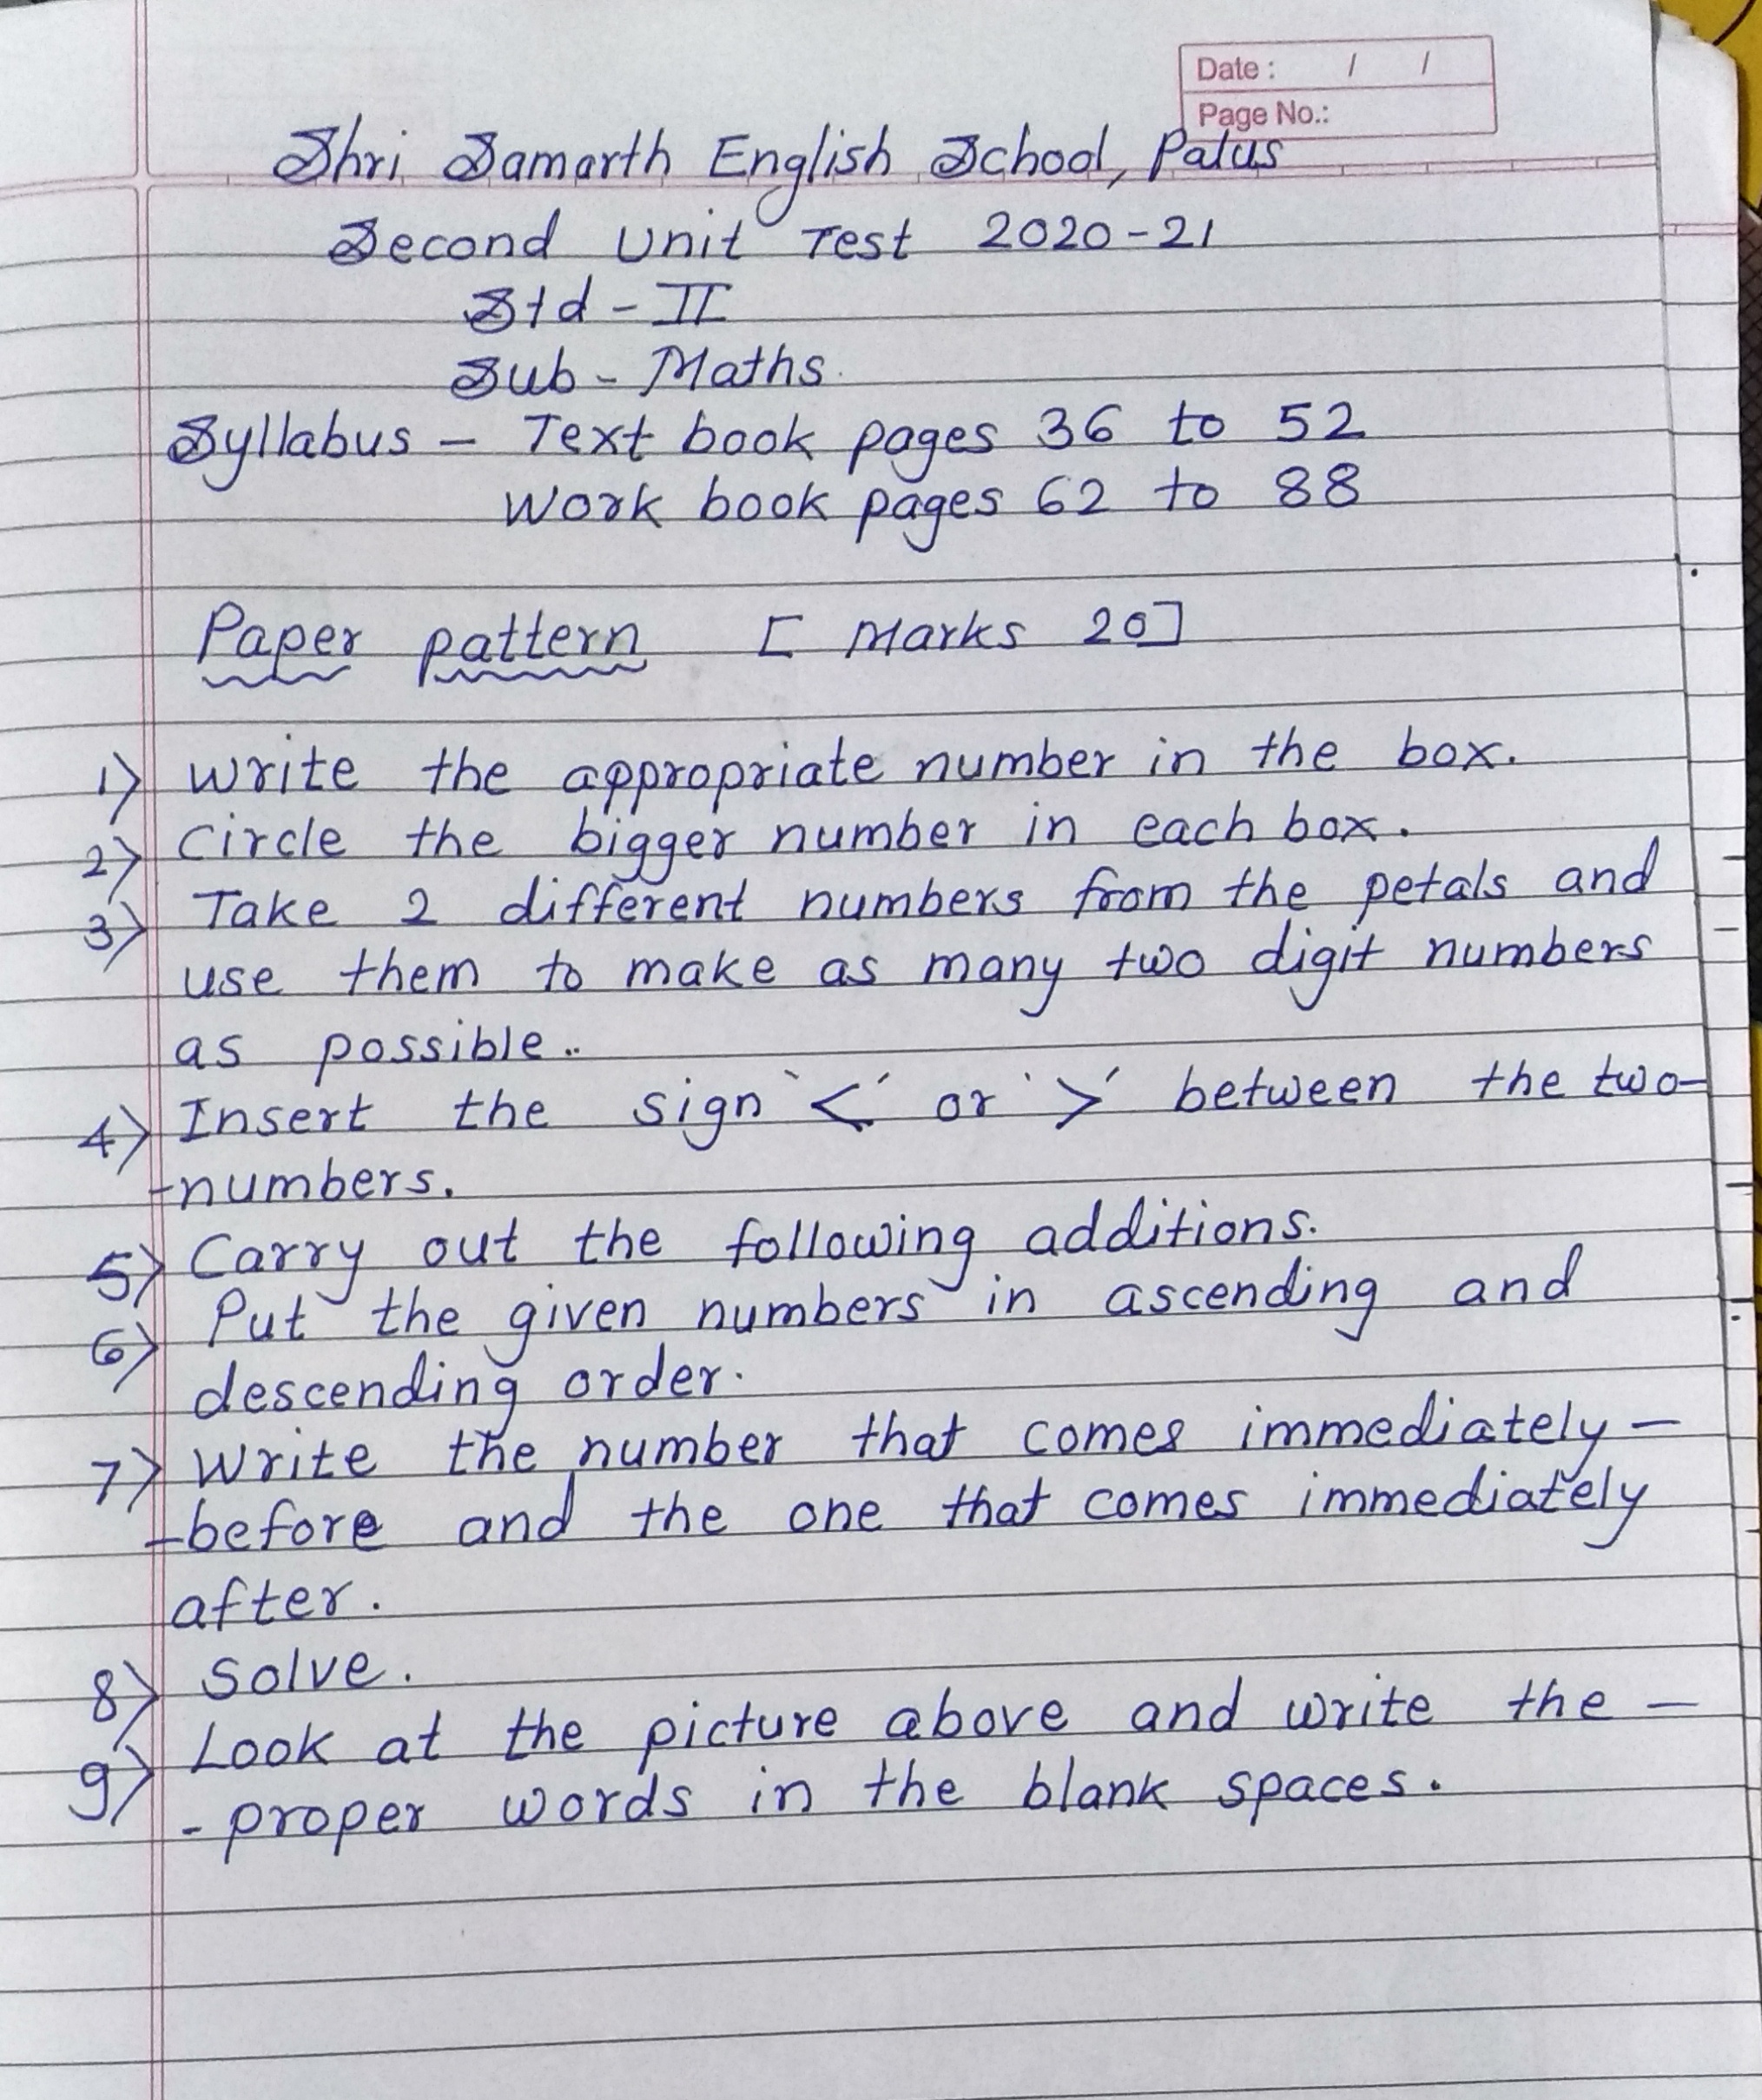 Date : / /
Page No.:
Shri Samarth English School, Palus
Second Unit Test 2020-21
Std - II
Sub - Maths.
Syllabus - Text book pages 36 to 52
Work book pages 62 to 88
Paper pattern [ Marks 20]
1) Write the appropriate number in the box.
2) Circle the bigger number in each box.
3) Take 2 different numbers from the petals and
use them to make as many two digit numbers
as possible..
4) Insert the sign '<' or '>' between the two-
-numbers.
5) Carry out the following additions.
6) Put the given numbers in ascending and
descending order.
7) Write the number that comes immediately-
-before and the one that comes immediately
after.
8) Solve.
9) Look at the picture above and write the -
- proper words in the blank spaces.